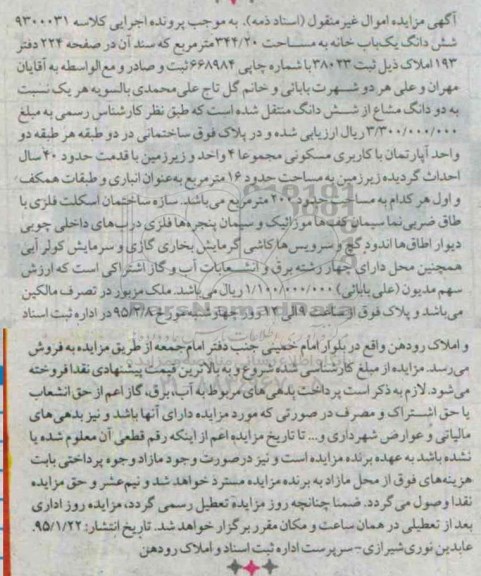 آگهی مزایده اموال غیرمنقول (اسناد ذمه). به موجب پرونده اجرایی کلاسه ۹۳۰۰۰۳۱
شش دانگ یک‌باب خانه به مساحت ۳۴۴/۲۰ مترمربع که سند آن در صفحه ۲۲۴ دفتر
۱۹۳ املاک ذیل ثبت ۳۸۰۲۳ با شماره چاپی ۶۶۸۹۸۴ ثبت و صادر و مع‌الواسطه به آقایان
مهران و علی هر دو شهرت بابائی و خانم گل تاج علی‌محمدی بالسویه هر یک نسبت
به دو دانگ مشاع از شش دانگ منتقل شده است که طبق نظر کارشناس رسمی به مبلغ
۳/۳۰۰/۰۰۰/۰۰۰ ریال ارزیابی شده و در پلاک فوق ساختمانی در دو طبقه هر طبقه دو
واحد آپارتمان با کاربری مسکونی مجموعا ۴ واحد و زیرزمین با قدمت حدود ۴۰ سال
احداث گردیده زیرزمین به مساحت حدود ۱۶ مترمربع به‌عنوان انباری و طبقات همکف
و اول هر کدام به مساحت حدود ۲۰۰ مترمربع می‌باشد. سازه ساختمان اسکلت فلزی با
طاق ضربی نما سیمان کف‌ها موزائیک و سیمان پنجره‌ها فلزی درب‌های داخلی چوبی
دیوار اطاق‌ها اندود گچ و سرویس‌ها کاشی گرمایش بخاری گازی و سرمایش کولر آبی
همچنین محل دارای چهار رشته برق و انشعابات آب و گاز اشتراکی است که ارزش
سهم مدیون (علی بابائی) ۱/۱۰۰/۰۰۰/۰۰۰ ریال می‌باشد. ملک مزبور در تصرف مالکین
می‌باشد و پلاک فوق از ساعت ۹ الی ۱۲ روز چهارشنبه مورخ ۹۵/۲/۸ در اداره ثبت اسناد
و املاک رودهن واقع در بلوار امام خمینی جنب دفتر امام جمعه از طریق مزایده به فروش
می‌رسد. مزایده از مبلغ کارشناسی شده شروع و به بالاترین قیمت پیشنهادی نقدا فروخته
می‌شود. لازم به ذکر است پرداخت بدهی‌های مربوط به آب، برق، گاز اعم از حق انشعاب
یا حق اشتراک و مصرف در صورتی که مورد مزایده دارای آنها باشد و نیز بدهی‌های
مالیاتی و عوارض شهرداری و... تا تاریخ مزایده اعم از اینکه رقم قطعی آن معلوم شده یا
نشده باشد به عهده برنده مزایده است و نیز درصورت وجود مازاد وجوه پرداختی بابت
هزینه‌های فوق از محل مازاد به برنده مزایده مسترد خواهد شد و نیم‌عشر و حق مزایده
نقدا وصول می‌گردد. ضمنا چنانچه روز مزایده تعطیل رسمی گردد، مزایده روز اداری
بعد از تعطیلی در همان ساعت و مکان مقرر برگزار خواهد شد. تاریخ انتشار: ۹۵/۱/۲۲
عابدین نوری شیرازی - سرپرست اداره ثبت اسناد و املاک رودهن